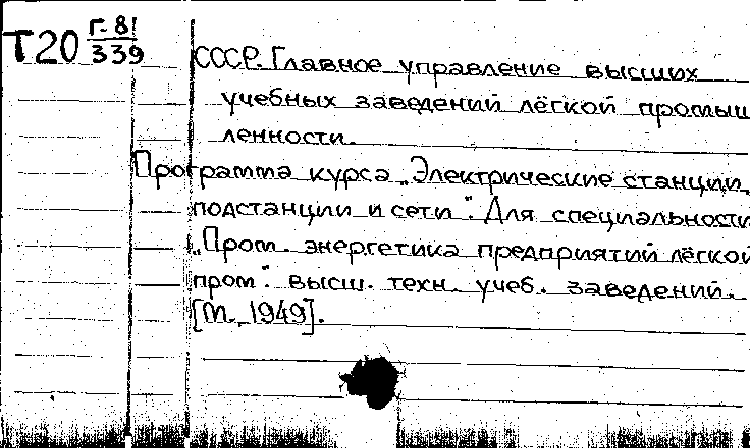 Т20 Г-81
339
СССР. Главное управление высших
учебных заведений лёгкой промыш
ленности.
Программа курса „Электрические станции,
подстанции и сети". Для специальности
„Пром. энергетика предприятий лёгкой
пром". высш. техн. учеб. заведений.
[М., 1949].